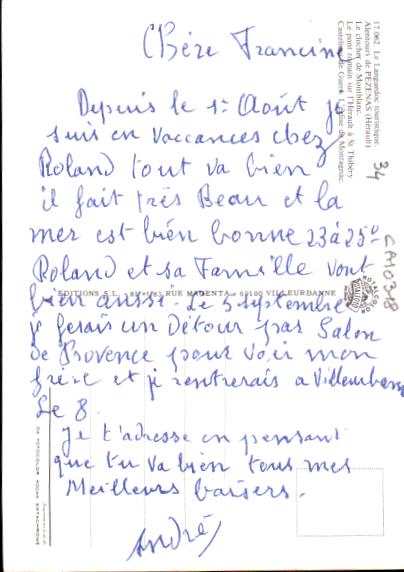 Chère Francine
Depuis le 1er Août je
suis en vaccances chez
Roland tout va bien
il fait très Beau et la
mer est bien bonne 23 à 25°
Roland et sa Famille vont
bien aussi. Le 5 septembre
je ferais un Détour par Salon
de Provence pour voir mon
frère et je rentrerais a Villeurbanne
Le 8.
Je t'adresse en pensant
que tu va bien tous mes
Meilleurs baisers.
André
17.062 Le Languedoc touristique
Alentours de PEZENAS (Hérault)
Le clocher de Montblanc.
Le pont romain sur l'Hérault à St Thibéry
34
CAM0318
RUE MAGENTA - 69100 VILLEURBANNE